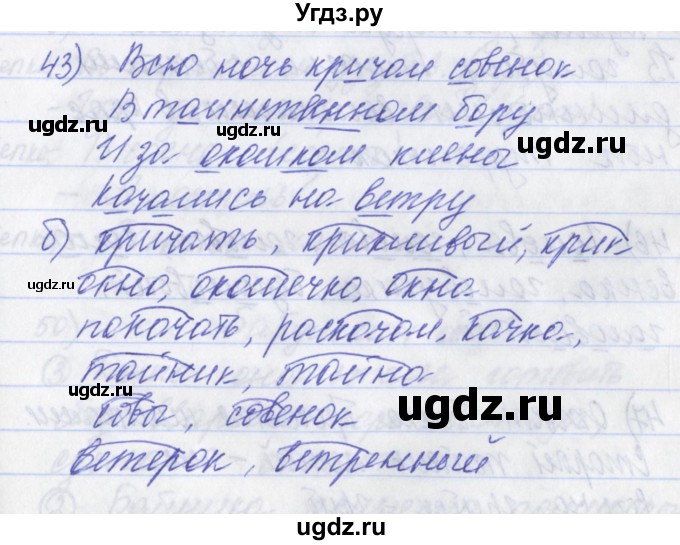 Угдз.ру
43) Всю ночь кричал совенок
В таинственном бору
ugdz.ru
ugdz.ru
ugdz.ru
И за окошком клены
Качались на ветру
б) кричать, крикливый, крик
ugdz.ru
окно, окошечко, окна
покачать, раскачал, качка,
тайник, тайна
ugdz.ru
ugdz.ru
совы, совенок
ветерок, ветренный
ugdz.ru
ugdz.ru